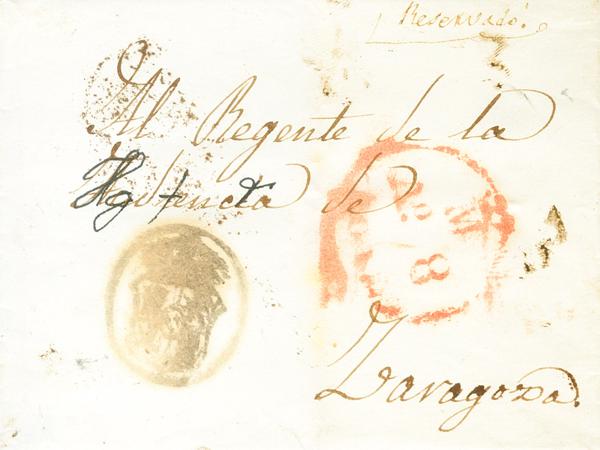 Reservado.
Al Regente de la
Audiencia de
Zaragoza.
8